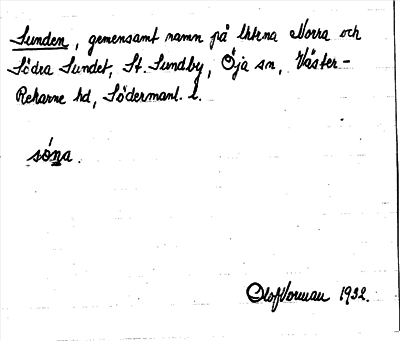 Sunden, gemensamt namn på lhterna Norra och
Södra Sundet, St. Sundby, Öja sn, Väster-
Rekarne hd, Södermanl. l.
sóna.
Olof Vorman 1932.